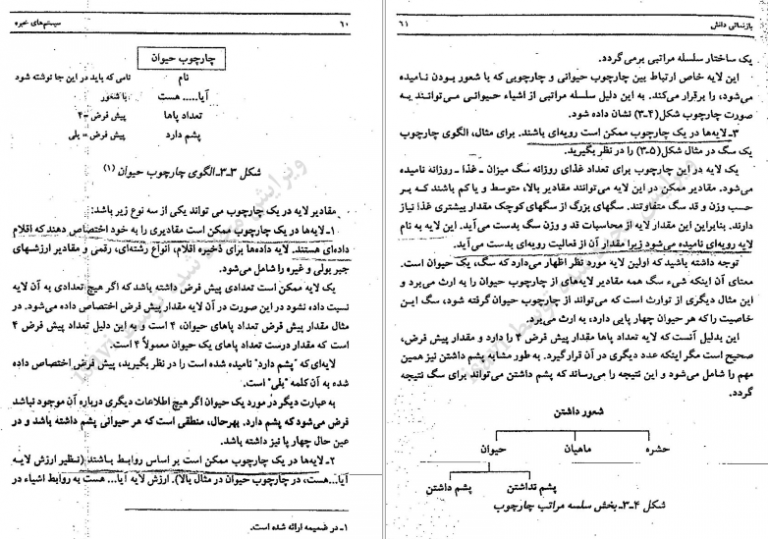 ۶۰ سیستم‌های خبره
چارچوب حیوان
نام نامی که باید در این جا نوشته شود
آیا..... هست با شعور
تعداد پاها پیش فرض =۴
پشم دارد پیش فرض = بلی
شکل ۳-۳ـ الگوی چارچوب حیوان (۱)
مقادیر لایه در یک چارچوب می تواند یکی از سه نوع زیر باشد:
۱ـ لایه‌ها در یک چارچوب ممکن است مقادیری را به خود اختصاص دهند که اقلام
داده‌ای هستند. لایه داده‌ها برای ذخیره اقلام، انواع رشته‌ای، رقمی و مقادیر ارزشهای
جبر بولی و غیره را شامل می‌شود.
یک لایه ممکن است تعدادی پیش فرض داشته باشد که اگر هیچ تعدادی به آن لایه
نسبت داده نشود در این صورت در آن لایه مقدار پیش فرض اختصاص داده می‌شود. در
مثال مقدار پیش فرض تعداد پاهای حیوان، ۴ است و به این دلیل تعداد پیش فرض ۴
است که مقدار درست تعداد پاهای یک حیوان معمولاً ۴ است.
لایه‌ای که "پشم دارد" نامیده شده است را در نظر بگیرید، پیش فرض اختصاص داده
شده به آن کلمه "بلی" است.
به عبارت دیگر در مورد یک حیوان اگر هیچ اطلاعات دیگری درباره آن موجود نباشد
فرض می‌شود که پشم دارد. بهرحال، منطقی است که هر حیوانی پشم داشته باشد و در
عین حال چهار پا نیز داشته باشد.
۲ـ لایه‌ها در یک چارچوب ممکن است بر اساس روابط باشند (نظیر ارزش لایه
آیا...هست، در چارچوب حیوان در مثال بالا). ارزش لایه آیا... هست به روابط اشیاء در
۱ـ در ضمیمه ارائه شده است.
بازنمائی دانش ۶۱
یک ساختار سلسله مراتبی برمی‌گردد.
این لایه خاص ارتباط بین چارچوب حیوانی و چارچوبی که با شعور بودن نامیده
می‌شود، را برقرار می‌کند. به این دلیل سلسله مراتبی از اشیاء حیوانی می‌توانند به
صورت چارچوب شکل(۴-۳) نشان داده شود.
۳ـ لایه‌ها در یک چارچوب ممکن است رویه‌ای باشند. برای مثال، الگوی چارچوب
یک سگ در مثال شکل(۵-۳) را در نظر بگیرید.
یک لایه در این چارچوب برای تعداد غذای روزانه سگ میزان ـ غذا ـ روزانه نامیده
می‌شود. مقادیر ممکن در این لایه می‌توانند مقادیر بالا، متوسط و یا کم باشند که بر
حسب وزن و قد سگ متفاوتند. سگهای بزرگ از سگهای کوچک مقدار بیشتری غذا نیاز
دارند. بنابراین این مقدار لایه از محاسبات قد و وزن سگ بدست می‌آید. این لایه به نام
لایه رویه‌ای نامیده می‌شود زیرا مقدار آن از فعالیت رویه‌ای بدست می‌آید.
توجه داشته باشید که اولین لایه مورد نظر اظهار می‌دارد که سگ، یک حیوان است.
معنای آن اینکه شیء سگ همه مقادیر لایه‌های از چارچوب حیوان را به ارث می‌برد و
این مثال دیگری از توارث است که می‌تواند از چارچوب حیوان گرفته شود، سگ این
خاصیت را که هر حیوان چهار پایی دارد، به ارث می‌برد.
این بدلیل آنست که لایه تعداد پاها مقدار پیش فرض ۴ را دارد و مقدار پیش فرض،
صحیح است مگر اینکه عدد دیگری در آن قرارگیرد. به طور مشابه پشم داشتن نیز همین
مهم را شامل می‌شود و این نتیجه را می‌رساند که پشم داشتن می‌تواند برای سگ نتیجه
گردد.
شعور داشتن
حشره ماهیان حیوان
پشم نداشتن پشم داشتن
شکل ۴-۳ـ بخش سلسه مراتب چارچوب